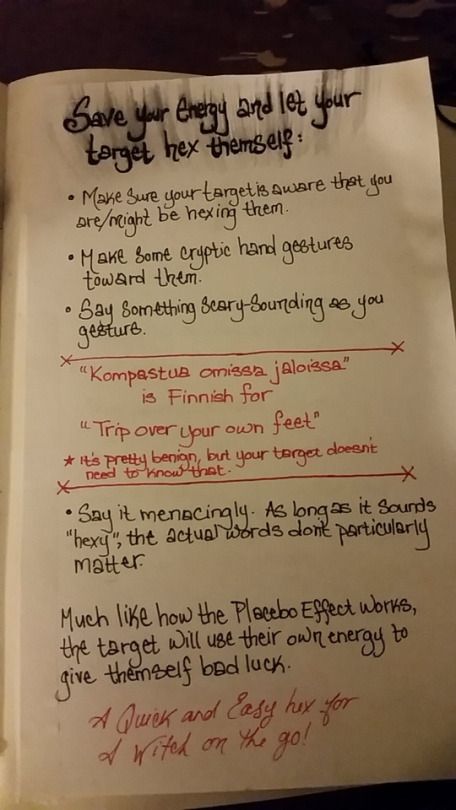 Save your Energy and let your
target hex themself:
• Make sure your target is aware that you
are/might be hexing them.
• Make some cryptic hand gestures
toward them.
• Say something scary-sounding as you
gesture.
"Kompastua omissa jaloissa"
is Finnish for
"Trip over your own feet"
★ it's pretty benign, but your target doesn't
need to know that.
• Say it menacingly. As long as it sounds
"hexy", the actual words don't particularly
matter.
Much like how the Placebo Effect works,
the target will use their own energy to
give themself bad luck.
A Quick and Easy hex for
A Witch on the go!